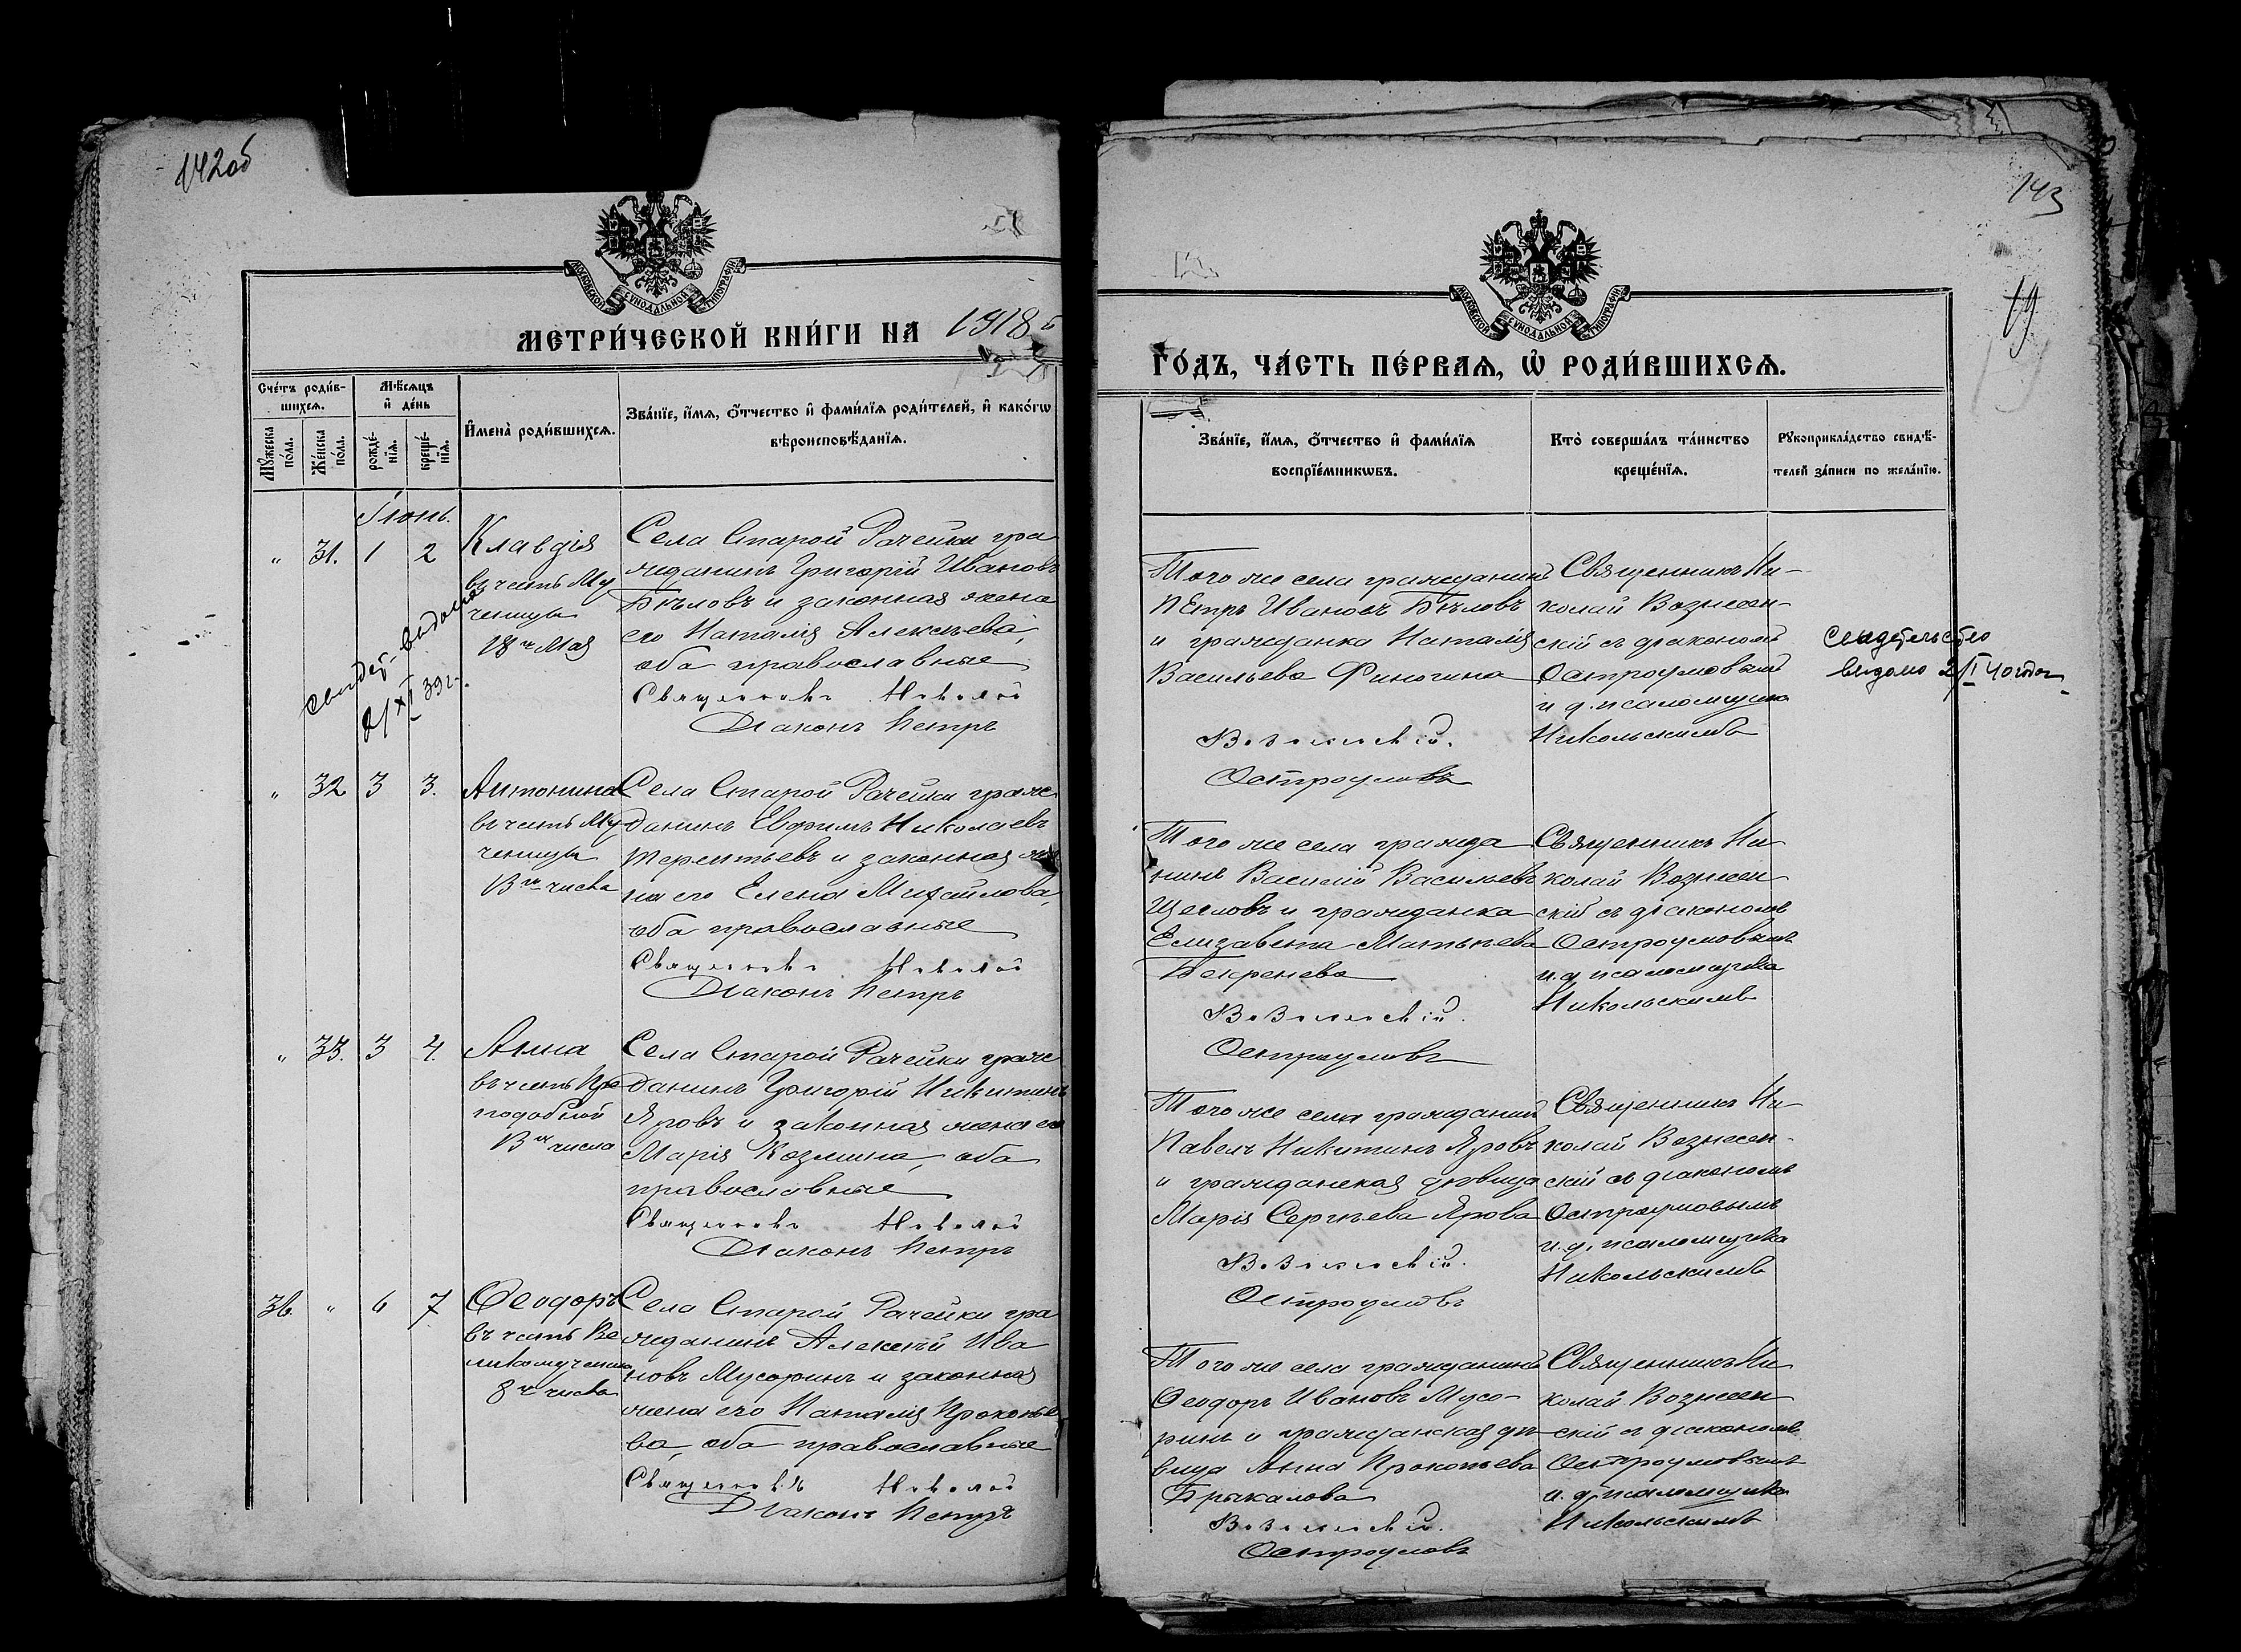 142об
МОСКОВСКОЙ СѴНОДАЛЬНОЙ ТИПОГРАФІИ
МЕТРИ́ЧЕСКОЙ КНИ́ГИ НА 1918 й
Сче́тъ роди́в-
шихсѧ.
Мѣ́сѧцъ
и҆ де́нь
Мꙋ́жеска
по́ла.
Же́нска
по́ла.
рожде́-
нїѧ.
креще́-
нїѧ.
И҆мена̀ роди́вшихсѧ.
Зва́нїе, и҆́мѧ, ѻ҆́тчество и҆ фамѝлїѧ роди́телей, и҆ како́гѡ
вѣроисповѣ́данїѧ.
Іюнь.
" 31. 1 2
Клавдія
въ честь Му
ченицы
18го Мая
свидет. выдано
2/XI 39 г.
Села Старой Рачейки гра
жданинъ Григорій Ивановъ
Бѣловъ и законная жена
его Наталія Алексѣева,
оба православные
Священникъ Николай
Діаконъ Петръ
" 32 3 3.
Антонина
въ честь Му
ченицы
13го числа
Села Старой Рачейки граж
данинъ Евфимъ Николаевъ
Терентьевъ и законная же
на его Елена Михайлова,
оба православные
Священникъ Николай
Діаконъ Петръ
" 33. 3 4.
Анна
въ честь Пре
подобной
13го числа
Села Старой Рачейки граж
данинъ Григорій Никитинъ
Яровъ и законная жена его
Марія Козмина, оба
православные
Священникъ Николай
Діаконъ Петръ
36. " 6 7
Ѳеодоръ
въ честь Ве
ликомученика
8го числа
Села Старой Рачейки гра
жданинъ Алексѣй Ива
новъ Мусоринъ и законная
жена его Наталія Прокопье
ва, оба православные
Священникъ Николай
Діаконъ Петръ
143
19
МОСКОВСКОЙ СѴНОДАЛЬНОЙ ТИПОГРАФІИ
ГО́ДЪ, ЧА́СТЬ ПЕ́РВАѦ, Ѡ҆ РОДИ́ВШИХСѦ.
Зва́нїе, и҆́мѧ, ѻ҆́тчество и҆ фамѝлїѧ
воспрїе́мникѡвъ.
Кто̀ соверша́лъ та́инство
креще́нїѧ.
Рꙋкоприкла́дство свидѣ́-
телей за́писи по жела́нїю.
Того же села гражданинъ
Петръ Ивановъ Бѣловъ
и гражданка Наталія
Васильева Финогина
Вознесенскій.
Остроумовъ
Священникъ Ни-
колай Вознесен-
скій съ діакономъ
Остроумовымъ
и д. псаломщика
Никольскимъ
свидетельство
выдано 2/I 40 года
Того же села гражда
нинъ Василій Васильевъ
Щегловъ и гражданка
Елизавета Матвѣева
Бекренева
Вознесенскій.
Остроумовъ
Священникъ Ни
колай Вознесен
скій съ діакономъ
Остроумовымъ
и. д. псаломщика
Никольскимъ
Того же села гражданинъ
Павелъ Никитинъ Яровъ
и гражданская дѣвица
Марія Сергѣева Ярова
Вознесенскій.
Остроумовъ
Священникъ Ни-
колай Вознесен-
скій съ діакономъ
Остроумовымъ
и. д. псаломщика
Никольскимъ
Того же села гражданинъ
Ѳеодоръ Ивановъ Мусо-
ринъ и гражданская дѣ-
вица Анна Прокопьева
Брыкалова
Вознесенскій.
Остроумовъ
Священникъ Ни
колай Вознесен
скій съ діакономъ
Остроумовымъ
и. д. псаломщика
Никольскимъ